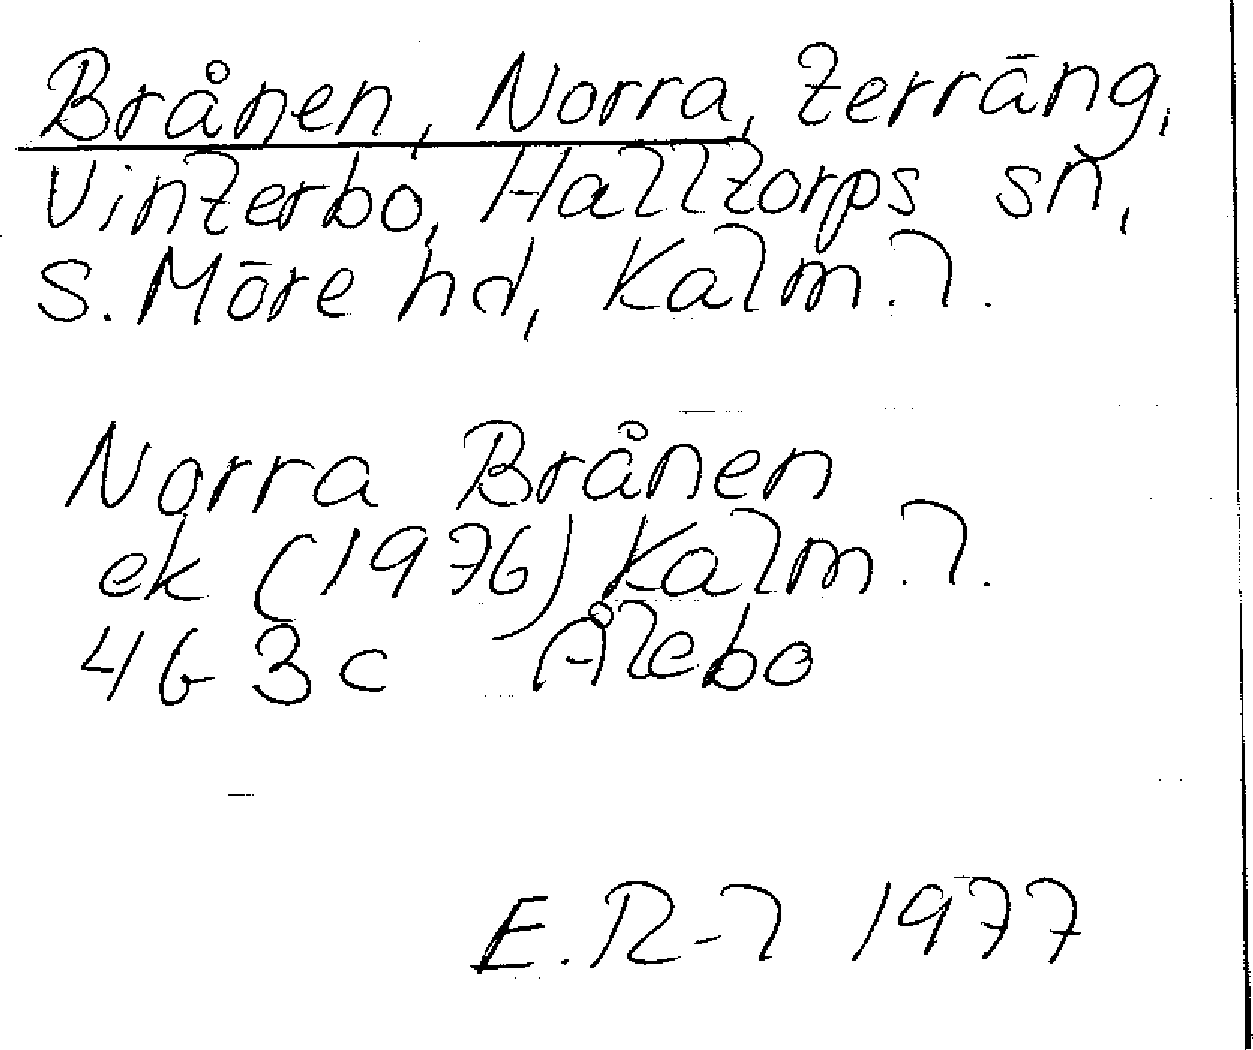 Brånen, Norra, terräng,
Vinterbo, Halltorps sn,
S. Möre hd, Kalm. l.
Norra Brånen
ek (1976) Kalm. l.
4G 3c Ålebo
E. R-l 1977